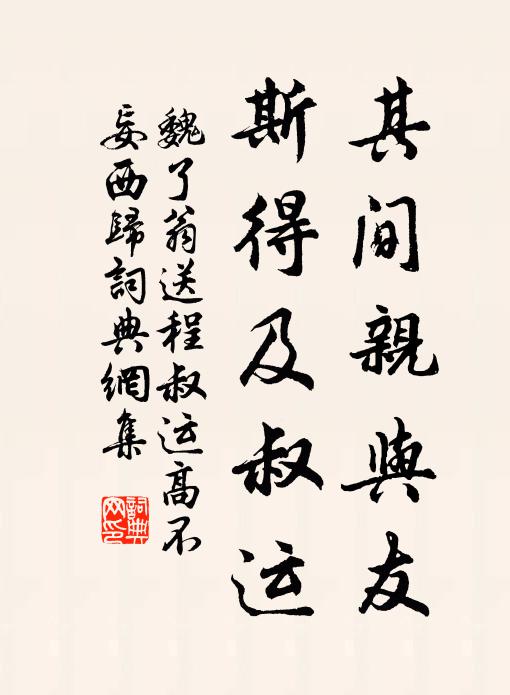 其间親與友
斯得及叔运
魏了翁送程叔运高不
妄西歸詞典網集
詞典网印